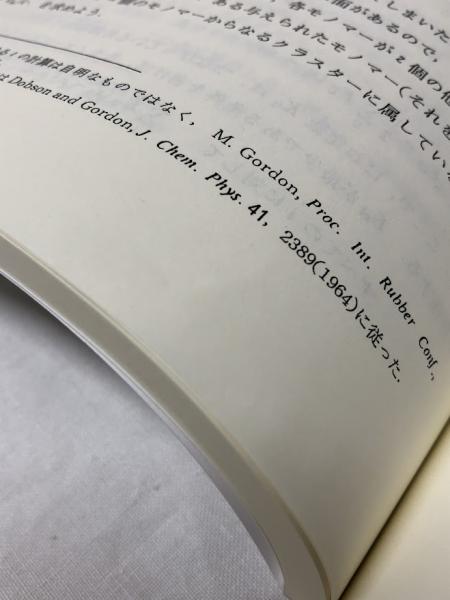 しまいた
面があるので,
各モノマーが z 個の他
ある与えられたモノマー(それを
個のモノマーからなるクラスターに属している
を求めよう.
の計算は自明なものではなく, M. Gordon, Proc. Int. Rubber Conf.,
Dobson and Gordon, J. Chem. Phys. 41, 2389(1964)に従った.